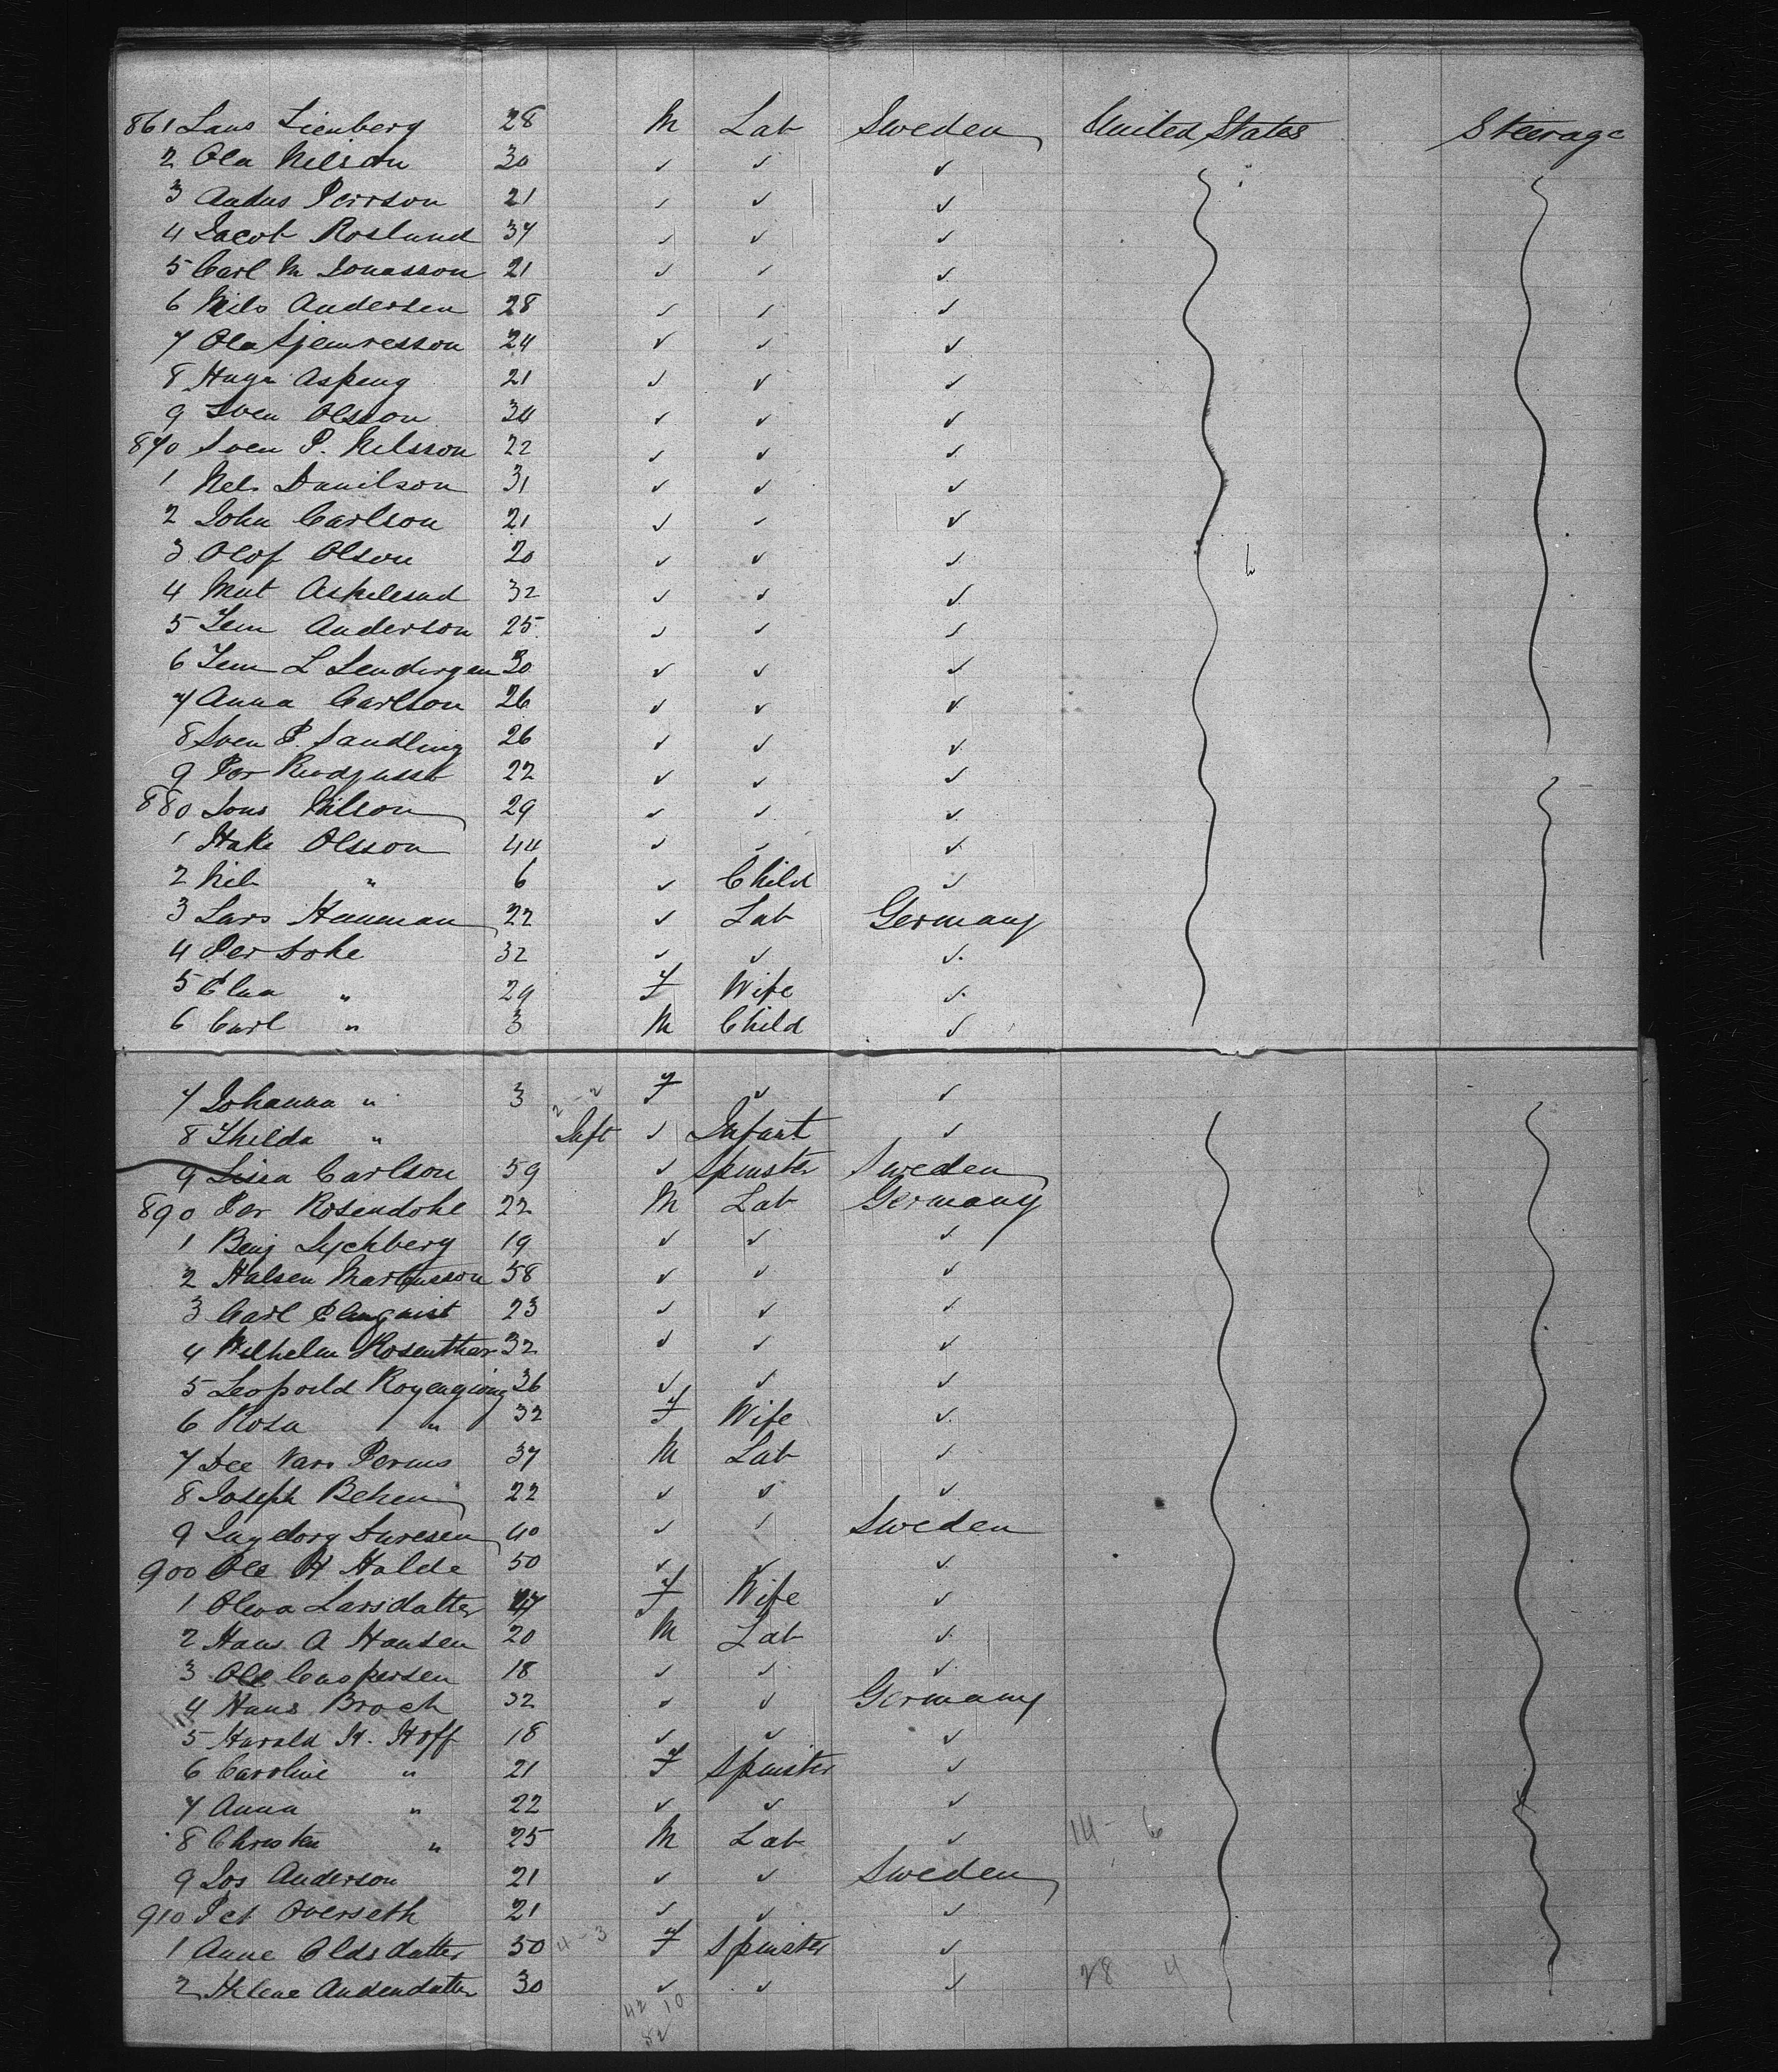 861 Laus Lienberg 28 M Lab Sweden United States Steerage
2 Ola Nilson 30 ✓ ✓ ✓
3 Andus Persson 21 ✓ ✓ ✓
4 Jacob Roslund 37 ✓ ✓ ✓
5 Carl M Jonasson 21 ✓ ✓ ✓
6 Nils Andersen 28 ✓ ✓ ✓
7 Ola 24 ✓ ✓ ✓
8 Hugo Aspeng 21 ✓ ✓ ✓
9 Sven Olsson 34 ✓ ✓ ✓
870 Sven P. Nilsson 22 ✓ ✓ ✓
1 Nels Danilson 31 ✓ ✓ ✓
2 John Carlson 21 ✓ ✓ ✓
3 Olof Olson 20 ✓ ✓ ✓
4 32 ✓ ✓ ✓
5 Anderson 25 ✓ ✓ ✓
6 L 30 ✓ ✓ ✓
7 Anna Carlson 26 ✓ ✓ ✓
8 Sven P. Sandling 26 ✓ ✓ ✓
9 Per 22 ✓ ✓ ✓
880 Jons Nilson 29 ✓ ✓ ✓
1 Hake Olsson 44 ✓ ✓ ✓
2 Nils " 6 ✓ Child ✓
3 Lars Hanman 22 ✓ Lab Germany
4 Per Dohe 32 ✓ ✓ ✓
5 Elna " 29 F Wife ✓
6 Carl " 3 M Child ✓
7 Johanna " 3 2 - 2 F ✓ ✓
8 Thilda " Inft ✓ Infant ✓
9 Lissa Carlson 59 ✓ Spinster Sweden
890 Per Rosendohl 22 M Lab Germany
1 Benj Lychberg 19 ✓ ✓ ✓
2 Halsen Martinsson 58 ✓ ✓ ✓
3 Carl Elmquist 23 ✓ ✓ ✓
4 Wilhelm Rosenther 32 ✓ ✓ ✓
5 Leopold 36 ✓ ✓ ✓
6 Rosa " 32 F Wife ✓
7 37 M Lab ✓
8 Joseph Behem 22 ✓ ✓ ✓
9 40 ✓ ✓ Sweden
900 Ole H Holde 50 ✓ ✓ ✓
1 Olava Larsdatter 47 F Wife ✓
2 Hans A Hansen 20 M Lab ✓
3 Ole Caspersen 18 ✓ ✓ ✓
4 Hans Broch 32 ✓ ✓ Germany
5 Harald H. Hoff 18 ✓ ✓ ✓
6 Caroline " 21 F Spinster ✓
7 Anna " 22 ✓ ✓ ✓
8 Christen " 25 M Lab ✓ 14 - 6
9 Jos Anderson 21 ✓ ✓ Sweden
910 Pet Overseth 21 ✓ ✓ ✓
1 Anne Oldsdatter 50 4 - 3 F Spinster ✓
2 Helene Andendatter 30 ✓ ✓ ✓ 28 4
42 10
52